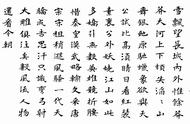 雪飄望長城內外惟餘莽
莽大河上下頓失滔滔山
舞銀蛇原馳蠟象欲與天
公試比高須晴日看紅裝
素裹分外妖嬈江山如此
多嬌引無數英雄競折腰
惜秦皇漢武略輸文采唐
宗宋祖稍遜風騷一代天
驕成吉思汗只識彎弓射
大雕俱往矣數風流人物
還看今朝